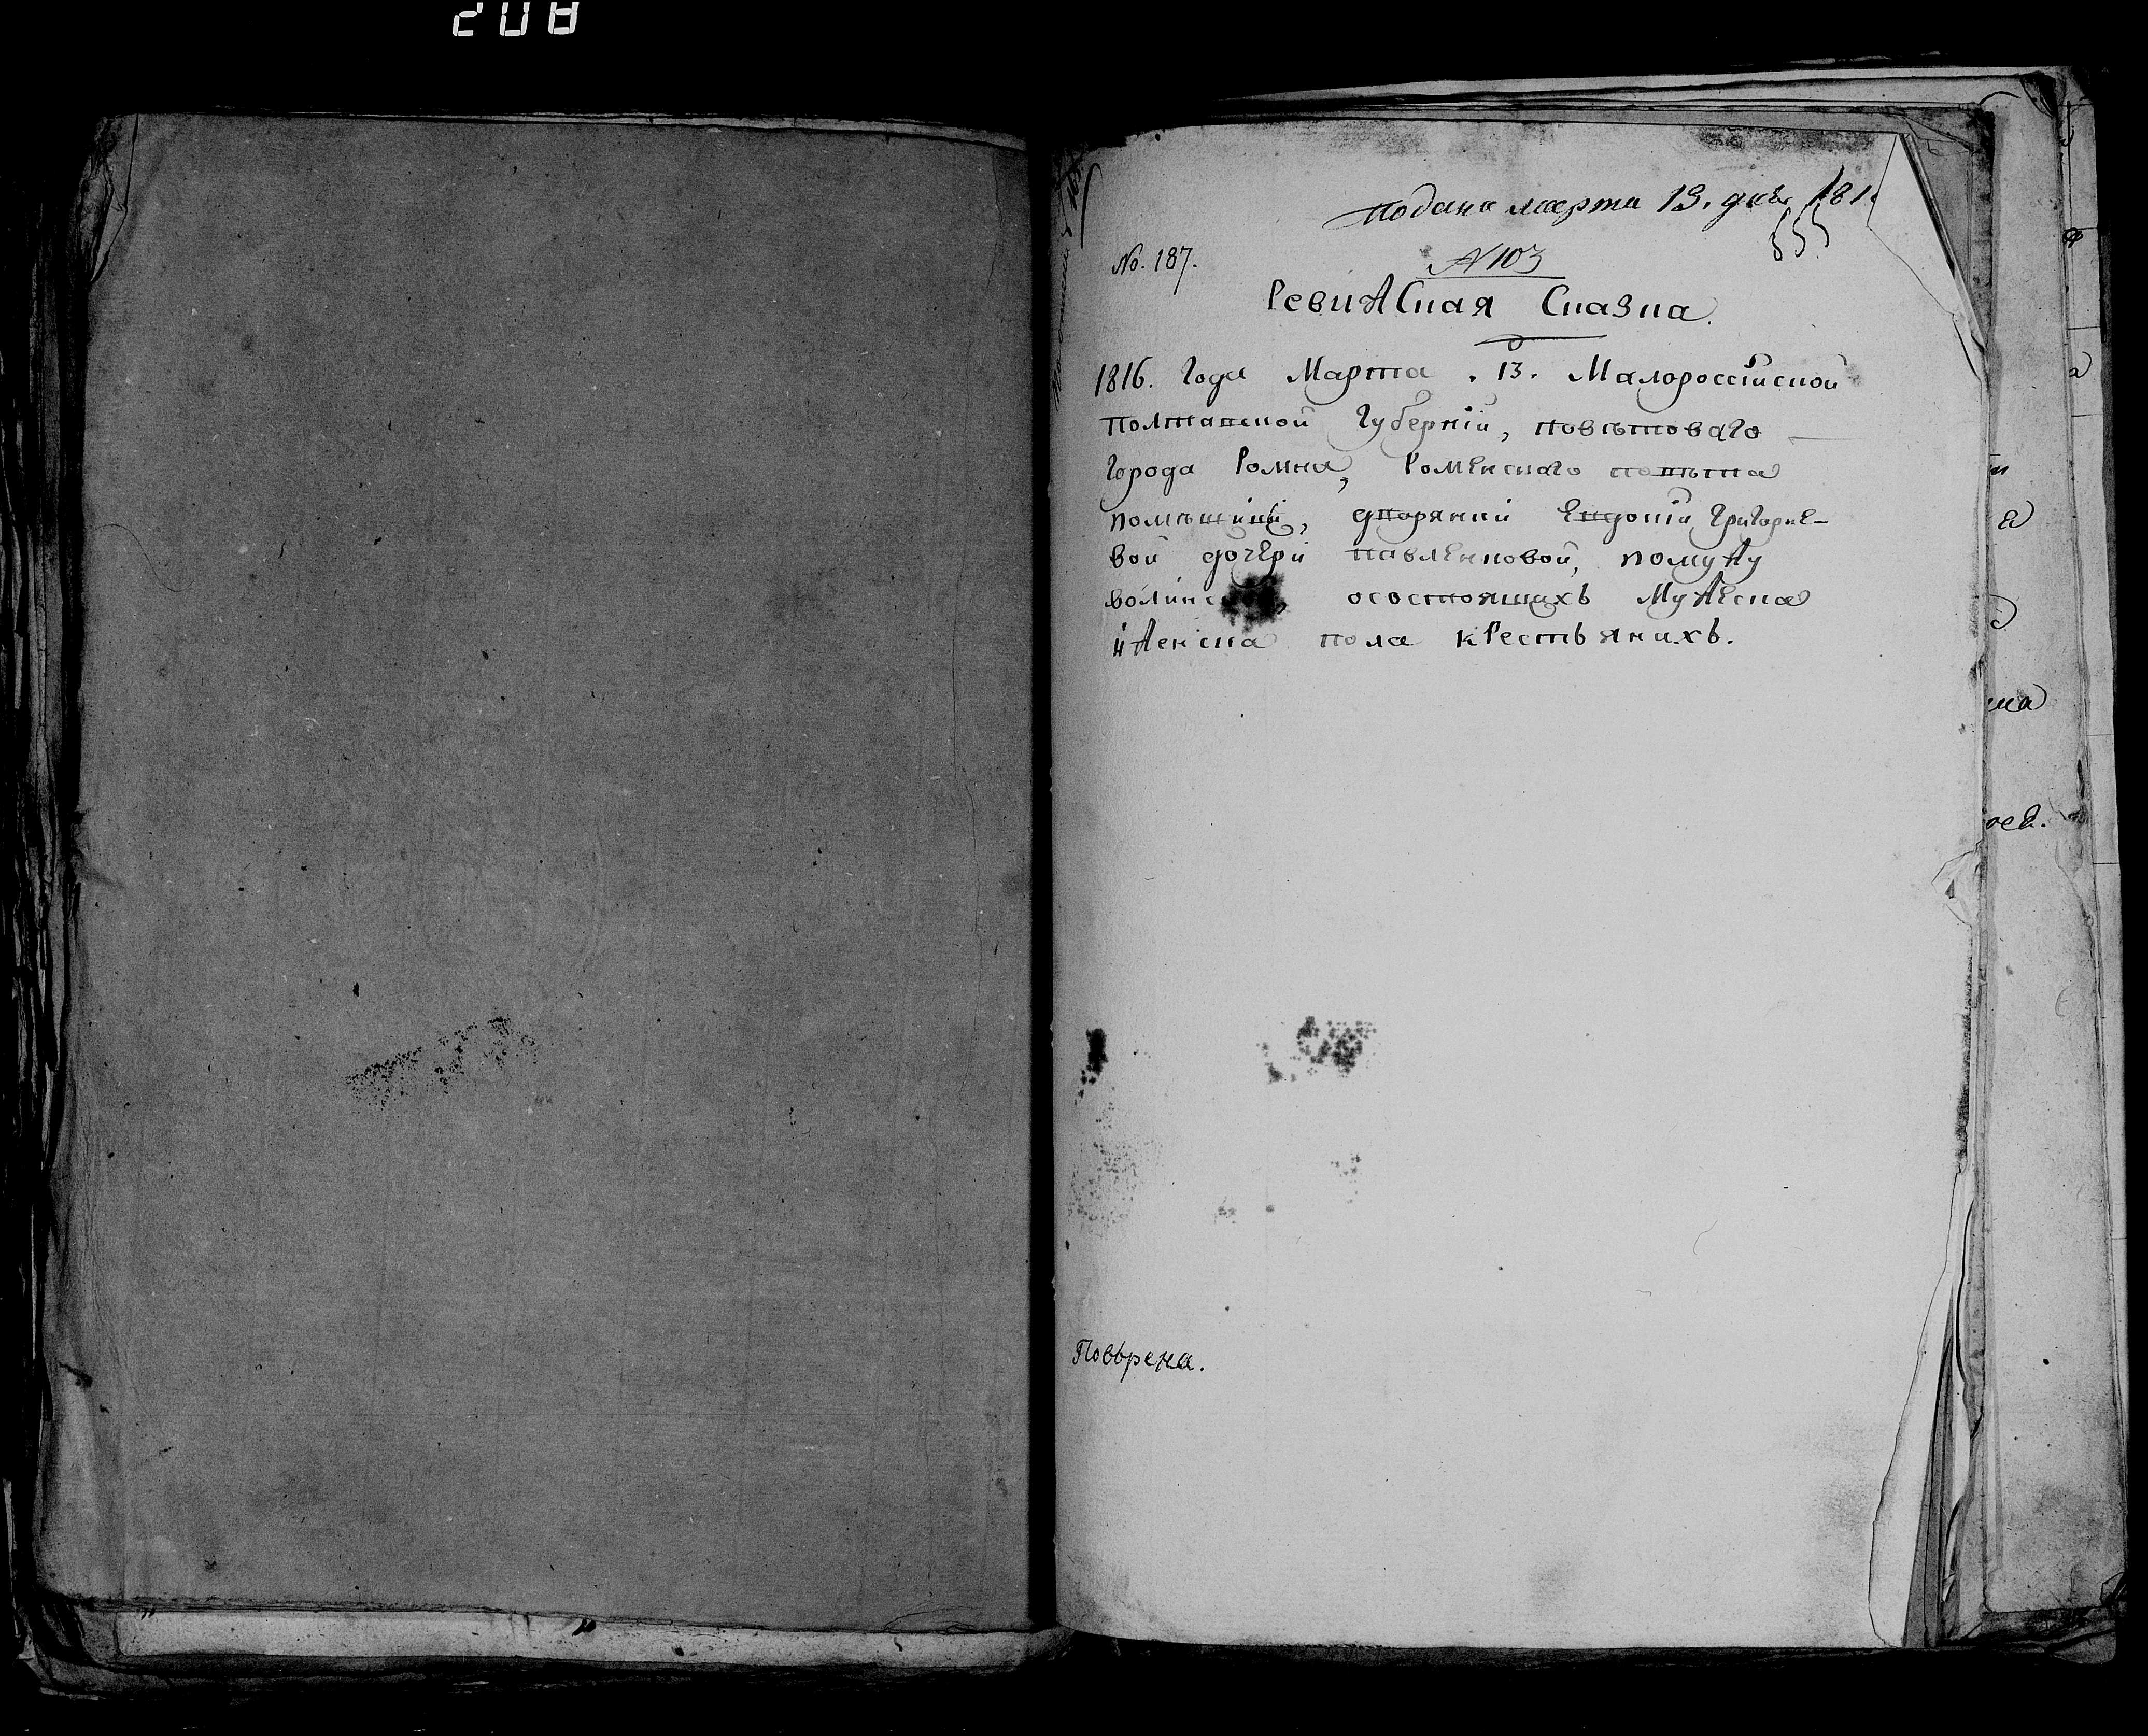 208
подана марта 13. дня 181
555
No. 187.
№ 103
Ревижская Сказка.
1816. Года Марта. 13. Малороссійской
полтавской Губерніи, повѣтоваго
города Ромна, Роменскаго повѣта
помѣщици, дворянки Евдокіи Григорие-
вой дочери Павленковой, помужу
волинс осостоящихъ мужеска
иженска пола крестьянихъ.
Повѣрена.